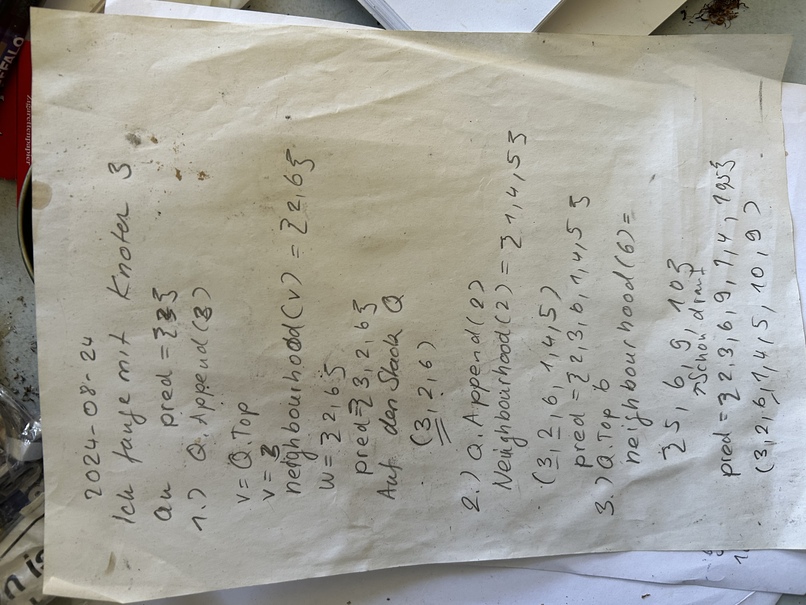 Zigarettenpapier
BUFFALO
2024-08-24
Ich fange mit Knoten 3
an pred = {3}
1.) Q.Append(3)
v= Q.Top
v= 3
neighbourhood(v) = {2,6}
w= {2,6}
pred={3, 2, 6}
Auf den Stack Q
(3, 2, 6)
2.) Q.Append(2)
Neighbourhood(2) = {1,4,5}
(3, 2, 6, 1, 4, 5)
pred = {2,3,6,1,4,5}
3.) Q.Top 6
neighbourhood(6)=
{5, 6, 9, 10}
↑Schon drauf
pred = {2,3,6,9,1,4, 105}
(3,2,6,1,4,5,10,9)